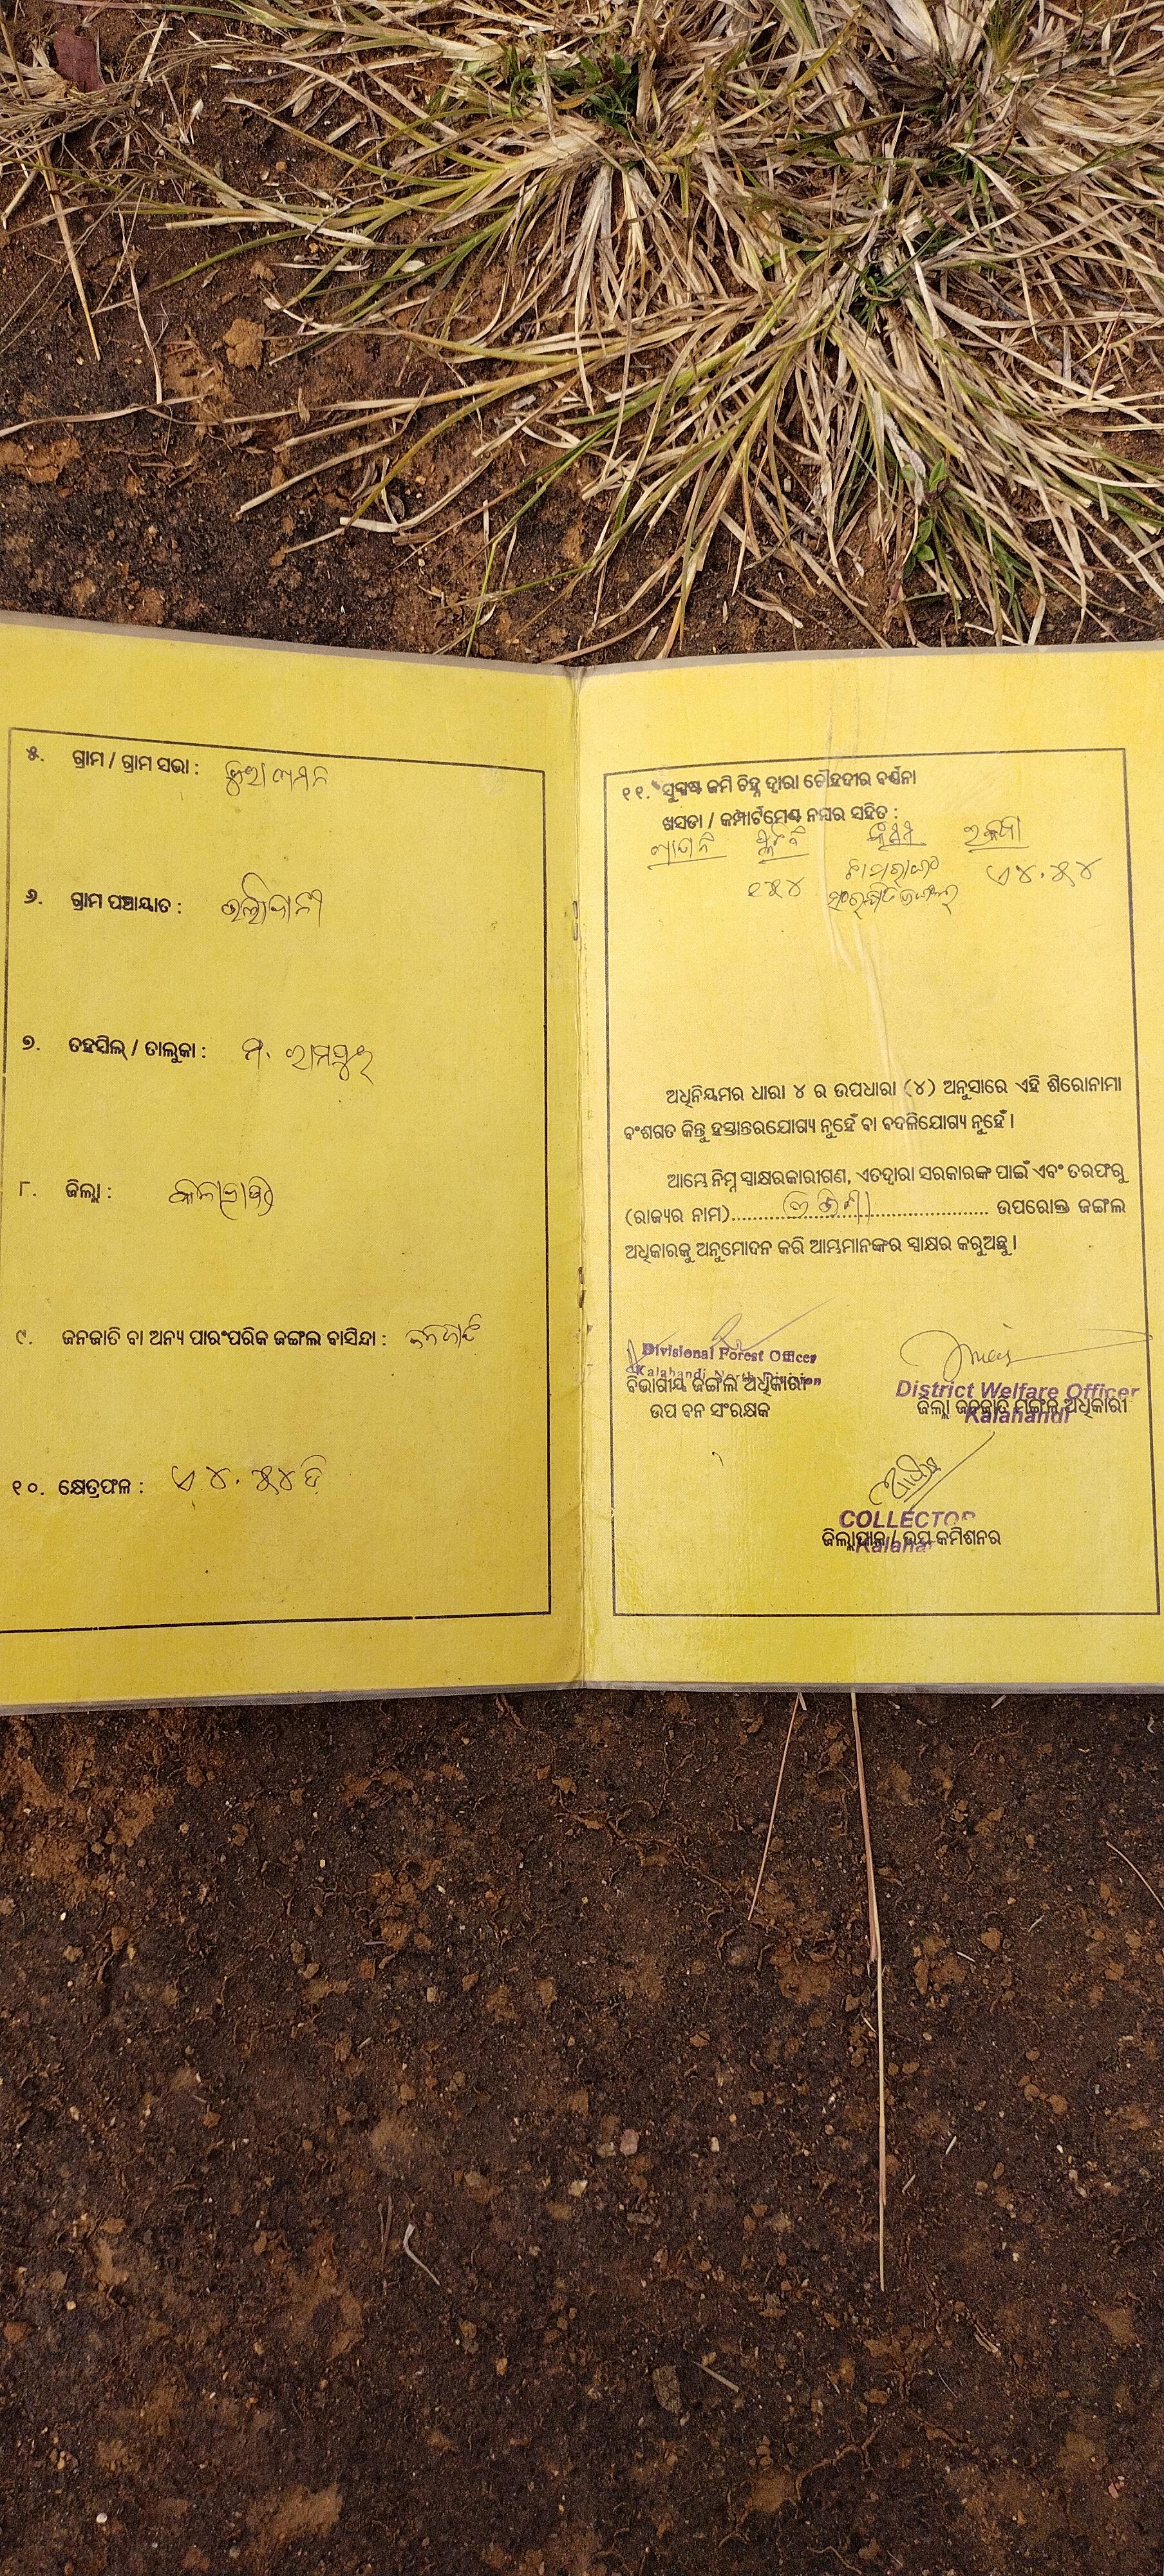 ୫. ଗ୍ରାମ / ଗ୍ରାମ ସଭା :
୬. ଗ୍ରାମ ପଞ୍ଚାୟାତ :
୭. ତହସିଲ୍ / ତାଲୁକା : ମ. ରାମପୁର
୮. ଜିଲ୍ଲା : କଳାହାଣ୍ଡି
୯. ଜନଜାତି ବା ଅନ୍ୟ ପାରଂପରିକ ଜଙ୍ଗଲ ବାସିନ୍ଦା : ଜନଜାତି
୧୦. କ୍ଷେତ୍ରଫଳ : ଏ ୪.୫୪ ଡି
୧୧. ସୁସ୍ପଷ୍ଟ ଜମି ଚିହ୍ନ ଦ୍ୱାରା ଚୌହଦୀର ବର୍ଣ୍ଣନା
ଖସଡା / କମ୍ପାର୍ଟମେଣ୍ଟ ନମ୍ବର ସହିତ :
କିସମ ରକବା
୧୫୪ ଏ ୪.୫୪
ଅଧିନିୟମର ଧାରା ୪ ର ଉପଧାରା (୪) ଅନୁସାରେ ଏହି ଶିରୋନାମା
ବଂଶଗତ କିନ୍ତୁ ହସ୍ତାନ୍ତରଯୋଗ୍ୟ ନୁହେଁ ବା ବଦଳିଯୋଗ୍ୟ ନୁହେଁ ।
ଆମ୍ଭେ ନିମ୍ନ ସ୍ୱାକ୍ଷରକାରୀଗଣ, ଏତଦ୍ୱାରା ସରକାରଙ୍କ ପାଇଁ ଏବଂ ତରଫରୁ
(ରାଜ୍ୟର ନାମ)..........ଓଡିଶା.......... ଉପରୋକ୍ତ ଜଙ୍ଗଲ
ଅଧିକାରକୁ ଅନୁମୋଦନ କରି ଆମ୍ଭମାନଙ୍କର ସ୍ୱାକ୍ଷର କରୁଅଛୁ ।
Divisional Forest Officer
Kalahandi North Division
ବିଭାଗୀୟ ଜଙ୍ଗଲ ଅଧିକାରୀ
ଉପ ବନ ସଂରକ୍ଷକ
District Welfare Officer
ଜିଲ୍ଲା ଜନଜାତି ମଙ୍ଗଳ ଅଧିକାରୀ
Kalahandi
COLLECTOR
ଜିଲ୍ଲାପାଳ / ଉପ କମିଶନର